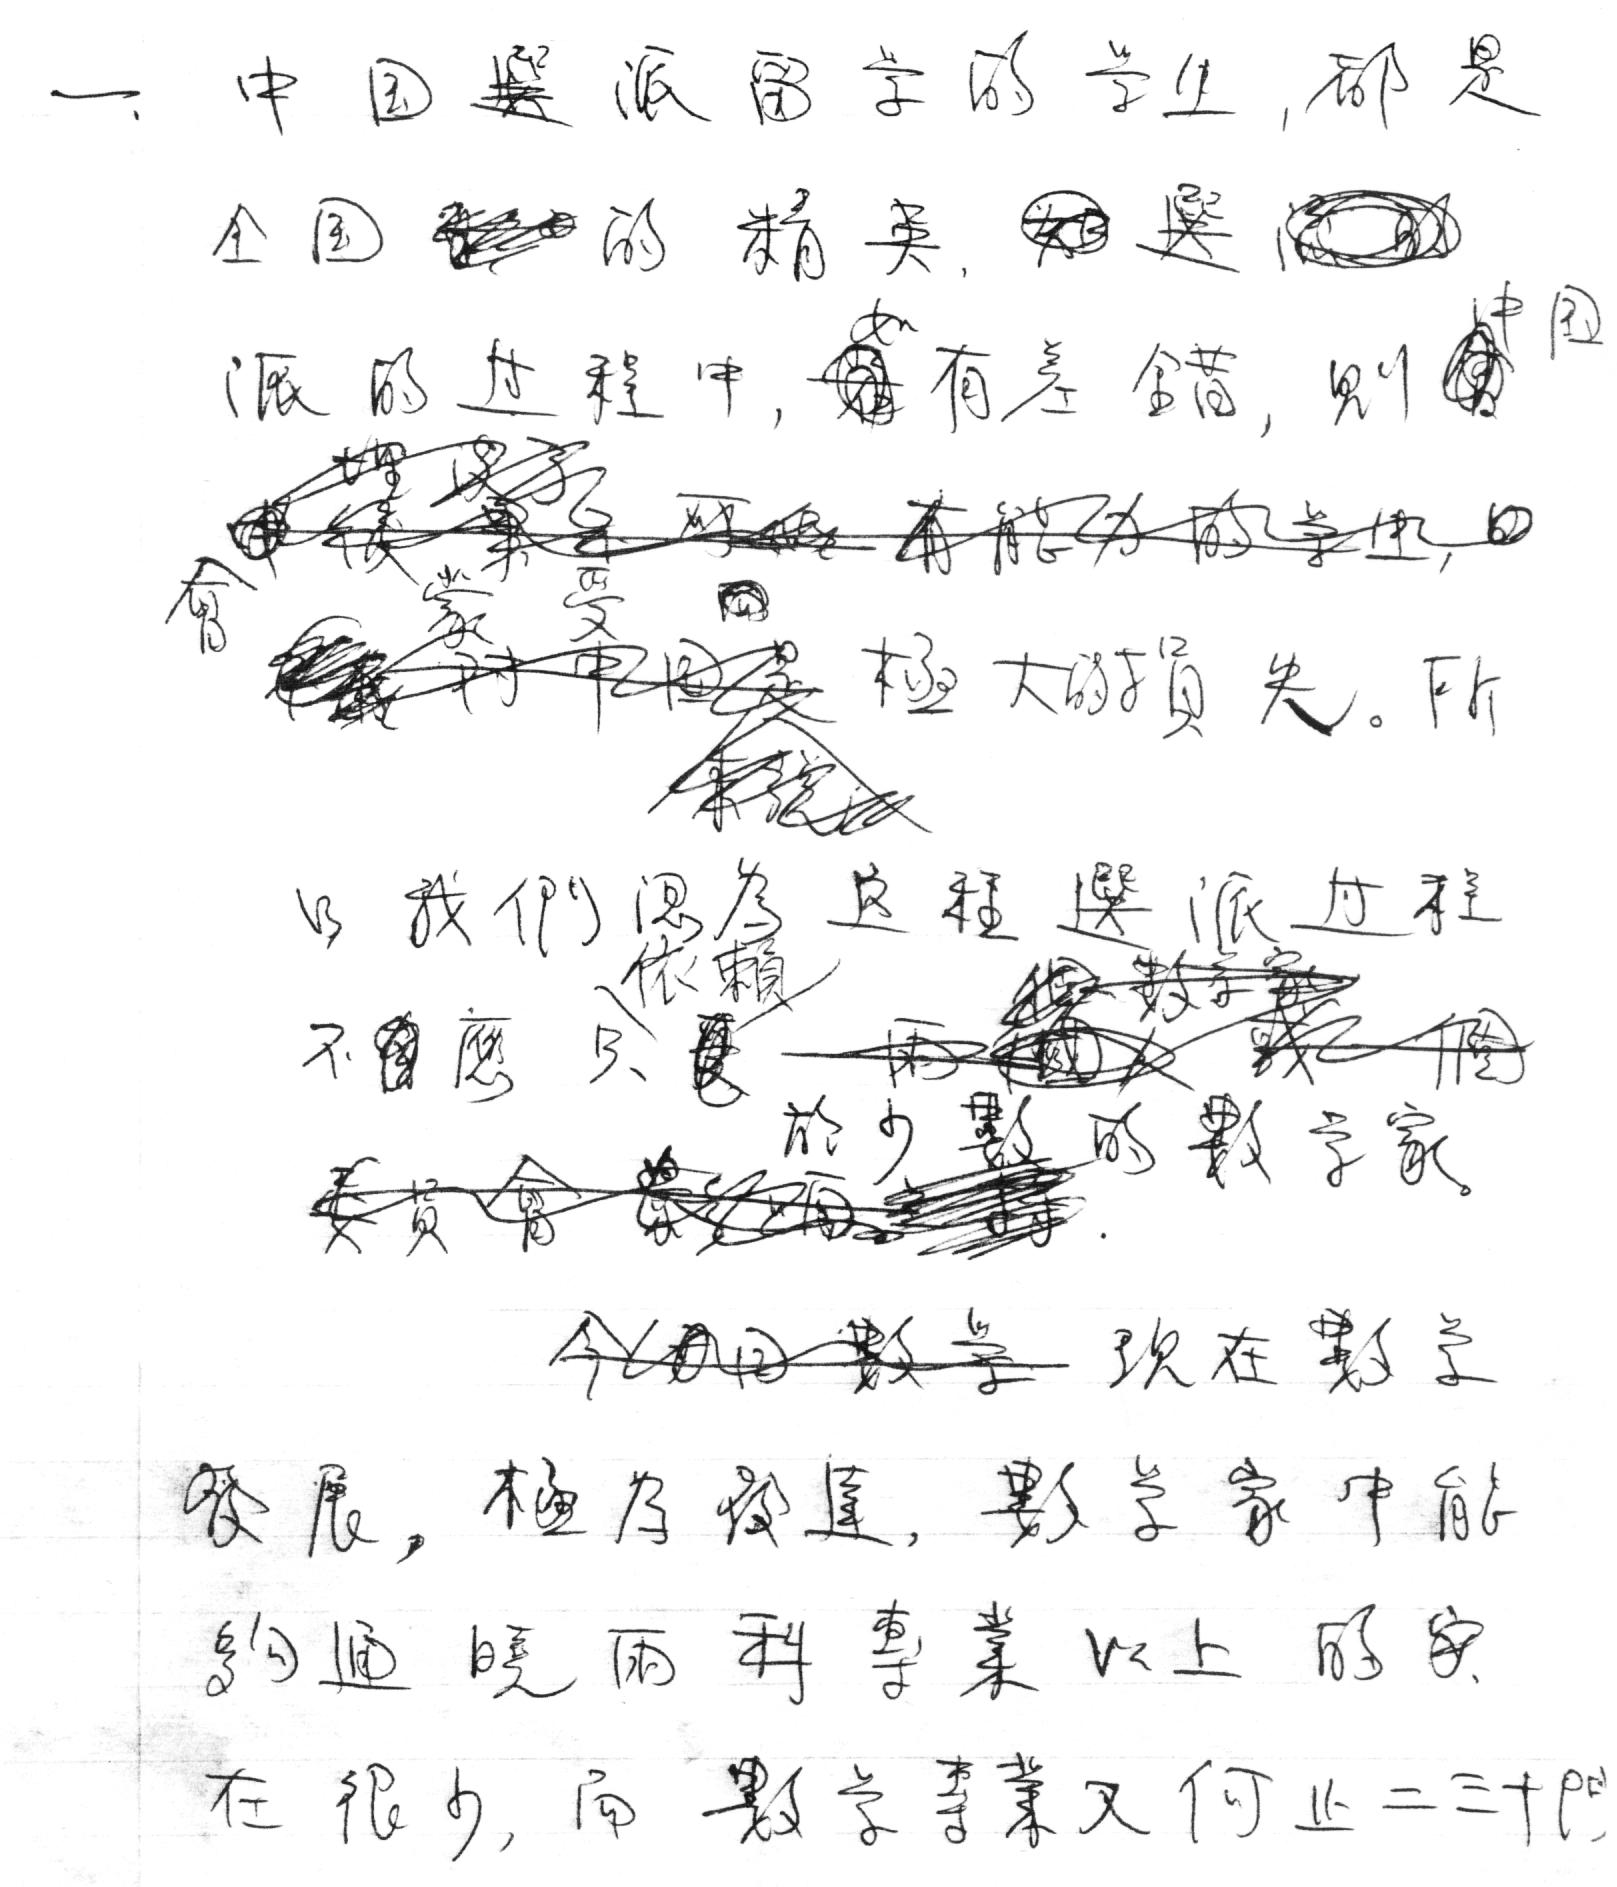 一、中国選派留学的学生,都是
全国的精英,選
中国
派的过程中,如有差錯,則
會蒙受
極大的損失。所
以我們認為这種選派过程
依賴
不應只
於少數的數学家。
現在數学
發展,極为發達,數学家中能
夠通曉兩科專業以上的实
在很少,而數学專業又何止二三十門